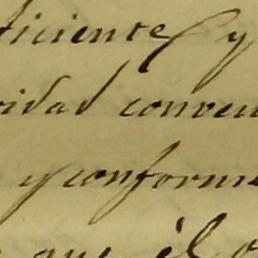 ficiente y
ridad conven
y conforme
que él o